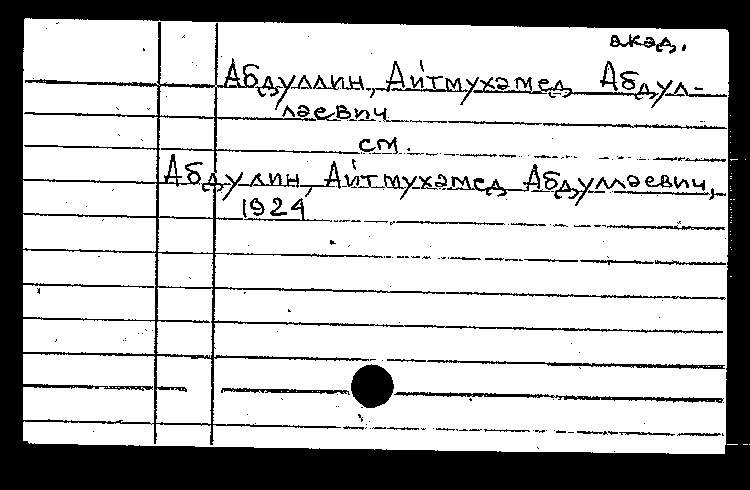 акад.
Абдуллин, Айтмухамед Абдул-
лаевич
см.
Абдулин, Айтмухамед Абдуллаевич,
1924